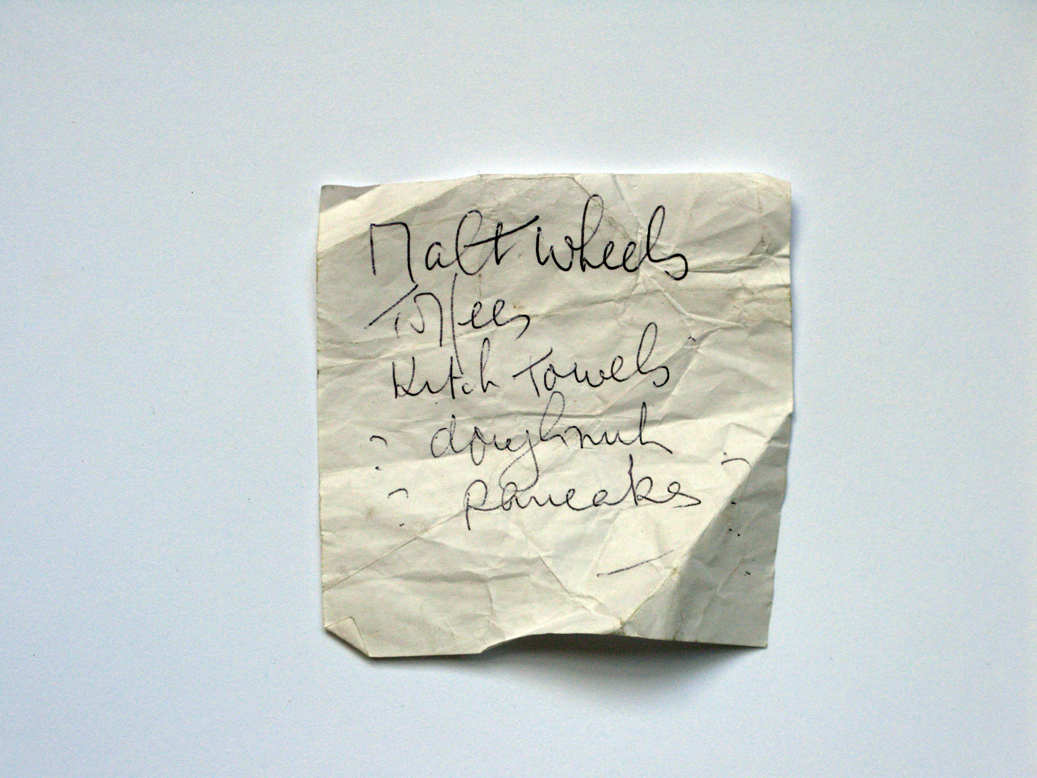 Malt Wheels
Toffees
Kitch Towels
? doughnuts
? pancakes ?